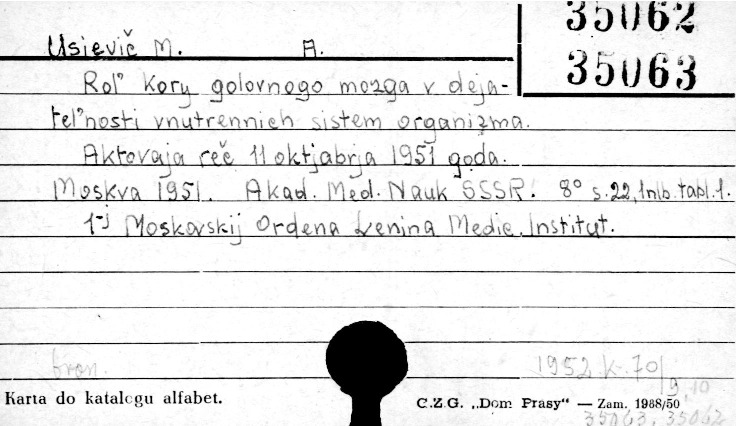 35062
35063
Usievič M. A.
Rol' kory golovnogo mozga v deja-
tel'nosti vnutrennich sistem organizma.
Aktovaja reč 11 oktjabrja 1951 goda.
Moskva 1951. Akad. Med. Nauk SSSR. 8° s. 22, 1 nlb. tabl. 1.
1-j Moskovskij Ordena Lenina Medic. Institut.
bron. 1952 K. 70/
9,10
Karta do katalogu alfabet.
C.Z.G. „Dom Prasy“ — Zam. 1988/50
35063, 35062